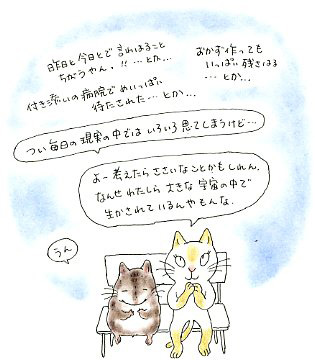 昨日と今日とで 言わはること
ちがうやん。!! …とか…
おかず作っても
いっぱい残さはる
…とか…
付き添いの病院でめいっぱい
待たされた…とか…
つい毎日の現実の中では いろいろ思てしまうけど…
よー考えたら ささいなことかもしれん。
なんせ わたしら 大きな 宇宙の中で
生かされているんやもんな。
うん